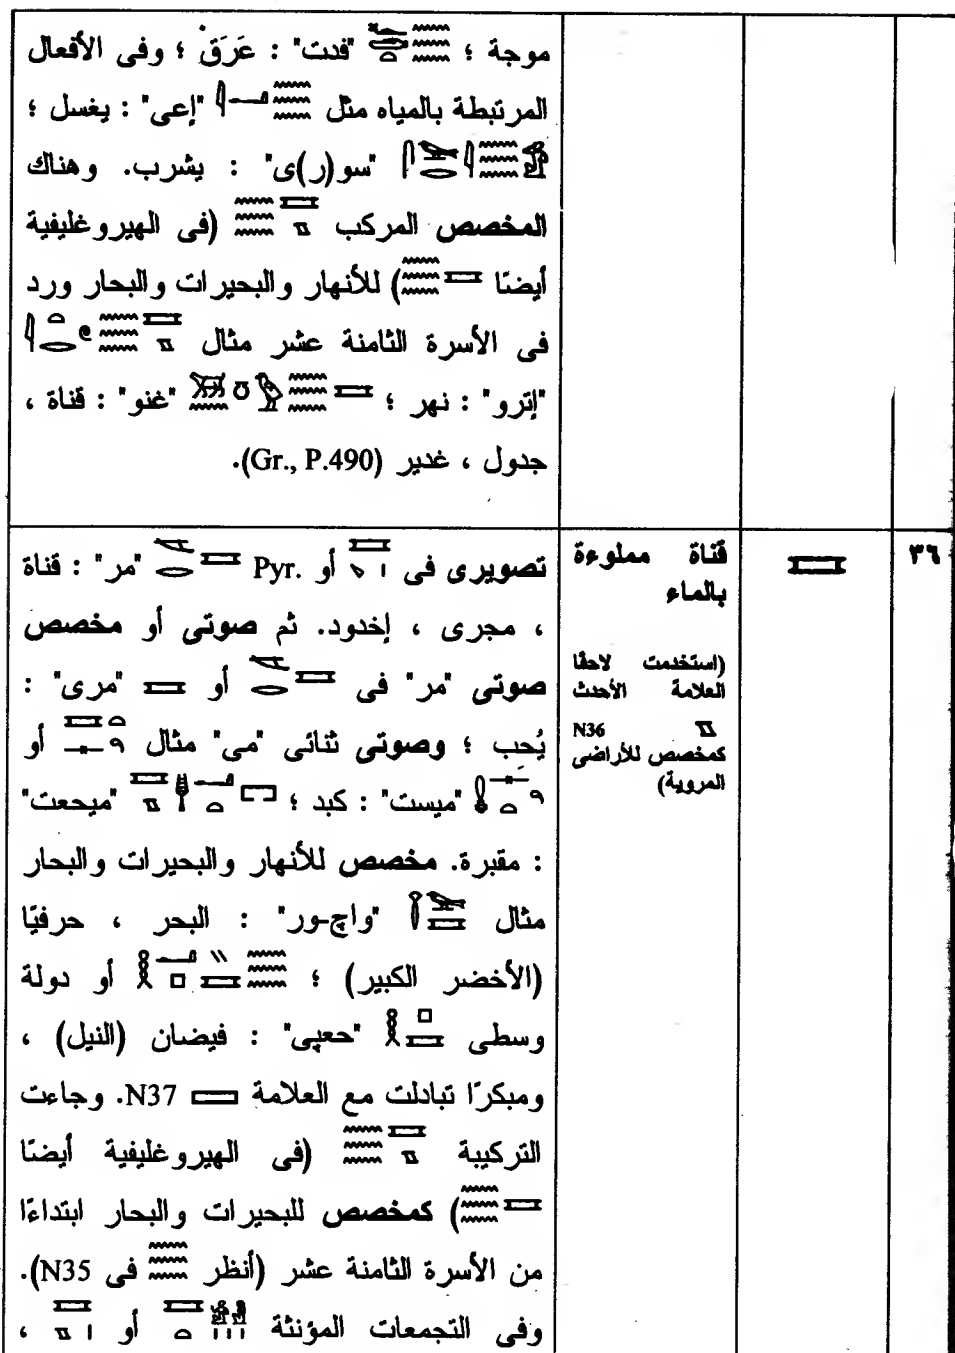 موجة ؛ "فدت" : عَرَقْ ؛ وفى الأفعال
المرتبطة بالمياه مثل "إعى" : يغسل ؛
"سو(ر)ى" : يشرب. وهناك
المخصص المركب (فى الهيروغليفية
أيضًا ) للأنهار والبحيرات والبحار ورد
فى الأسرة الثامنة عشر مثال
"إترو" : نهر ؛ "غنو" : قناة ،
جدول ، غدير (Gr., P.490).
٣٦
قناة مملوءة
بالماء
(استخدمت لاحقًا
العلامة الأحدث
N36
كمخصص للأراضى
المروية)
تصويرى فى أو Pyr. "مر" : قناة
، مجرى ، إخدود. ثم صوتى أو مخصص
صوتى "مر" فى أو "مرى" :
يُحِب ؛ وصوتى ثنائى "مى" مثال أو
"ميست" : كبد ؛ "ميحعت"
: مقبرة. مخصص للأنهار والبحيرات والبحار
مثال "واچ-ور" : البحر ، حرفيًا
(الأخضر الكبير) ؛ أو دولة
وسطى "حعپى" : فيضان (النيل) ،
ومبكرًا تبادلت مع العلامة N37. وجاءت
التركيبة (فى الهيروغليفية أيضًا
) كمخصص للبحيرات والبحار ابتداءًا
من الأسرة الثامنة عشر (أنظر فى N35).
وفى التجمعات المؤنثة أو ،